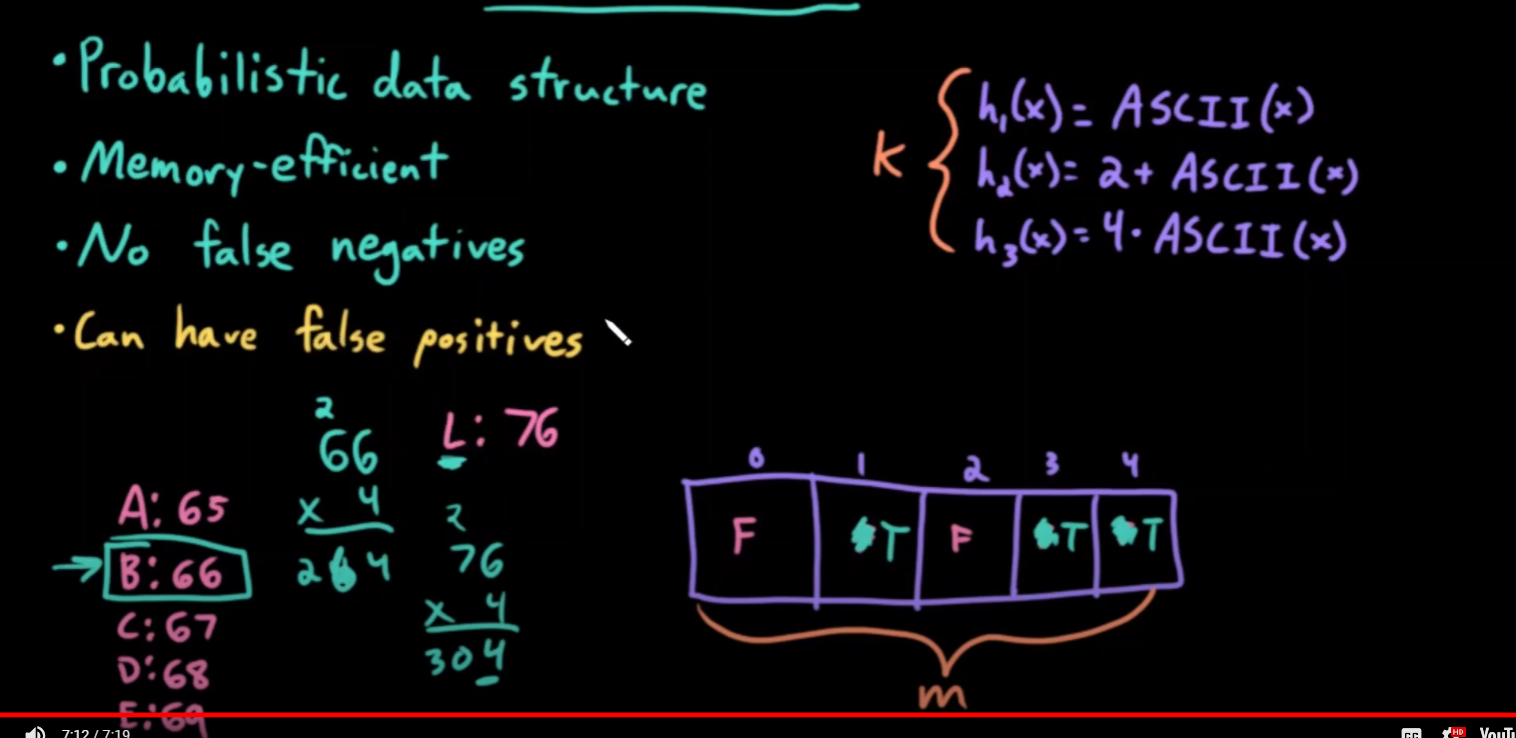 • Probabilistic data structure
• Memory-efficient
• No false negatives
• Can have false positives
K { h₁(x) = ASCII(x)
h₂(x) = 2 + ASCII(x)
h₃(x) = 4 · ASCII(x)
A: 65
→ B: 66
C: 67
D: 68
E: 69
2
66
x 4
264
L: 76
2
76
x 4
304
0 1 2 3 4
F T F T T
m
7:12 / 7:19
CC HD YouT